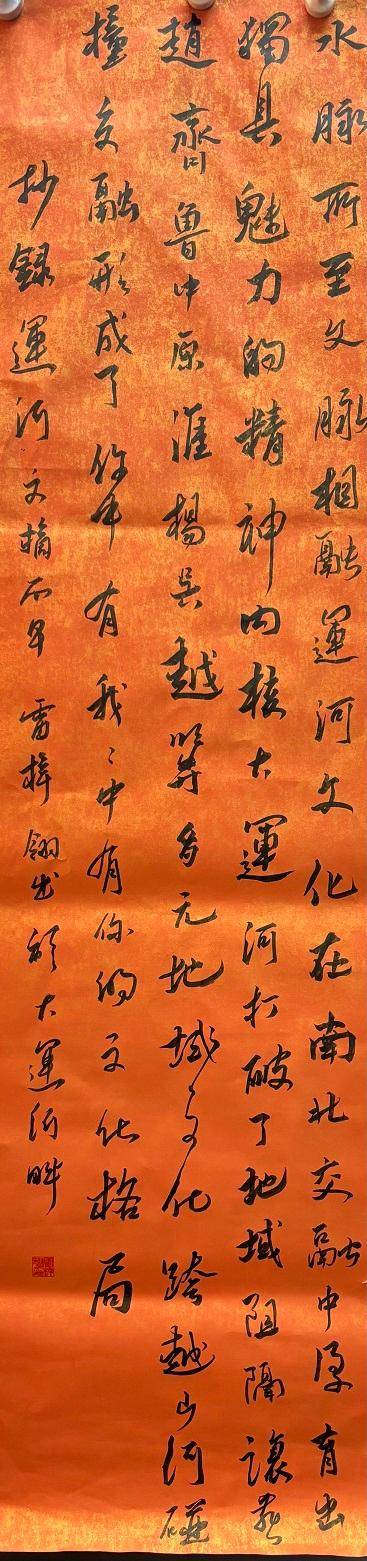 水脉所至文脉相融運河文化在南北交融中孕育出
獨具魅力的精神内核大運河打破了地域阻隔讓燕
趙齊魯中原淮揚吳越等多元地域文化跨越山河碰
撞交融形成了你中有我〻中有你的文化格局
抄録運河文摘 雷梓翎书於大運河畔